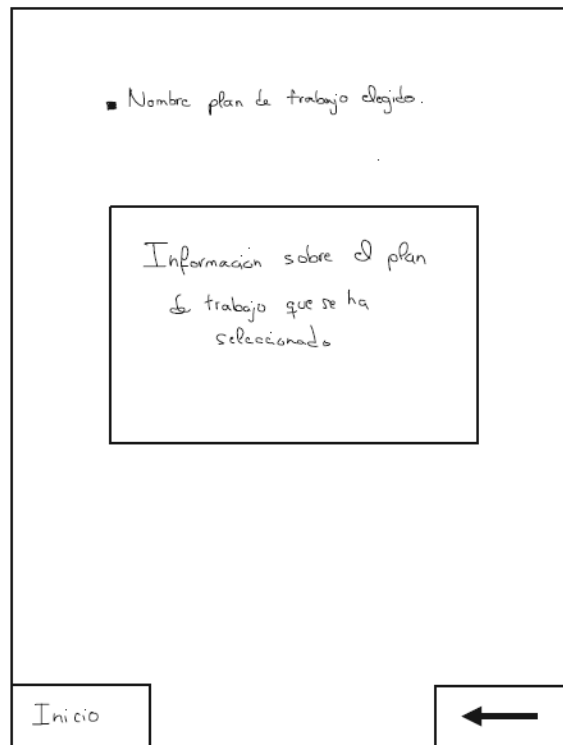 Nombre plan de trabajo elegido.
Información sobre el plan
de trabajo que se ha
seleccionado
Inicio